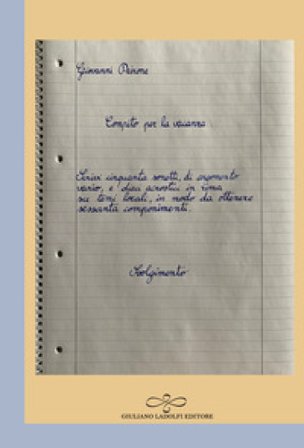 Giovanni
Compito per la vacanza
Scrivi cinquanta sonetti, di argomento
vario, e dieci acrostici in rima
su temi locali, in modo da ottenere
sessanta componimenti.
Svolgimento
GIULIANO LADOLFI EDITORE